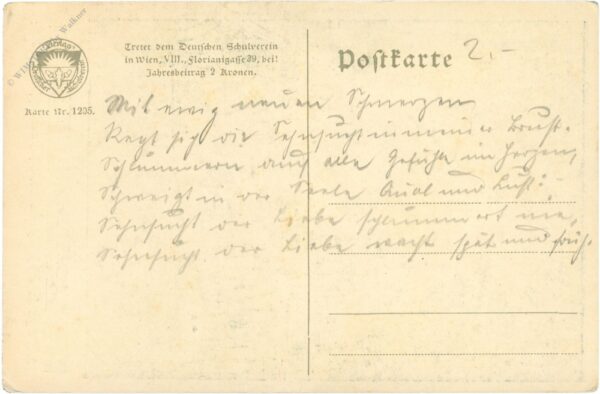 Tretet dem Deutschen Schulverein
in Wien, VIII., Florianigasse 39, bei!
Jahresbeitrag 2 Kronen.
Karte Nr. 1205.
Postkarte
2.-
Mit ewig neuen Schmerzen
Regt sich die Sehnsucht in meiner Brust.
Schlummern auch alle Gefühle im Herzen,
Schweigt in der Seele Qual und Lust:
Sehnsucht der Liebe schlummert nie,
Sehnsucht der Liebe wacht spät und früh.